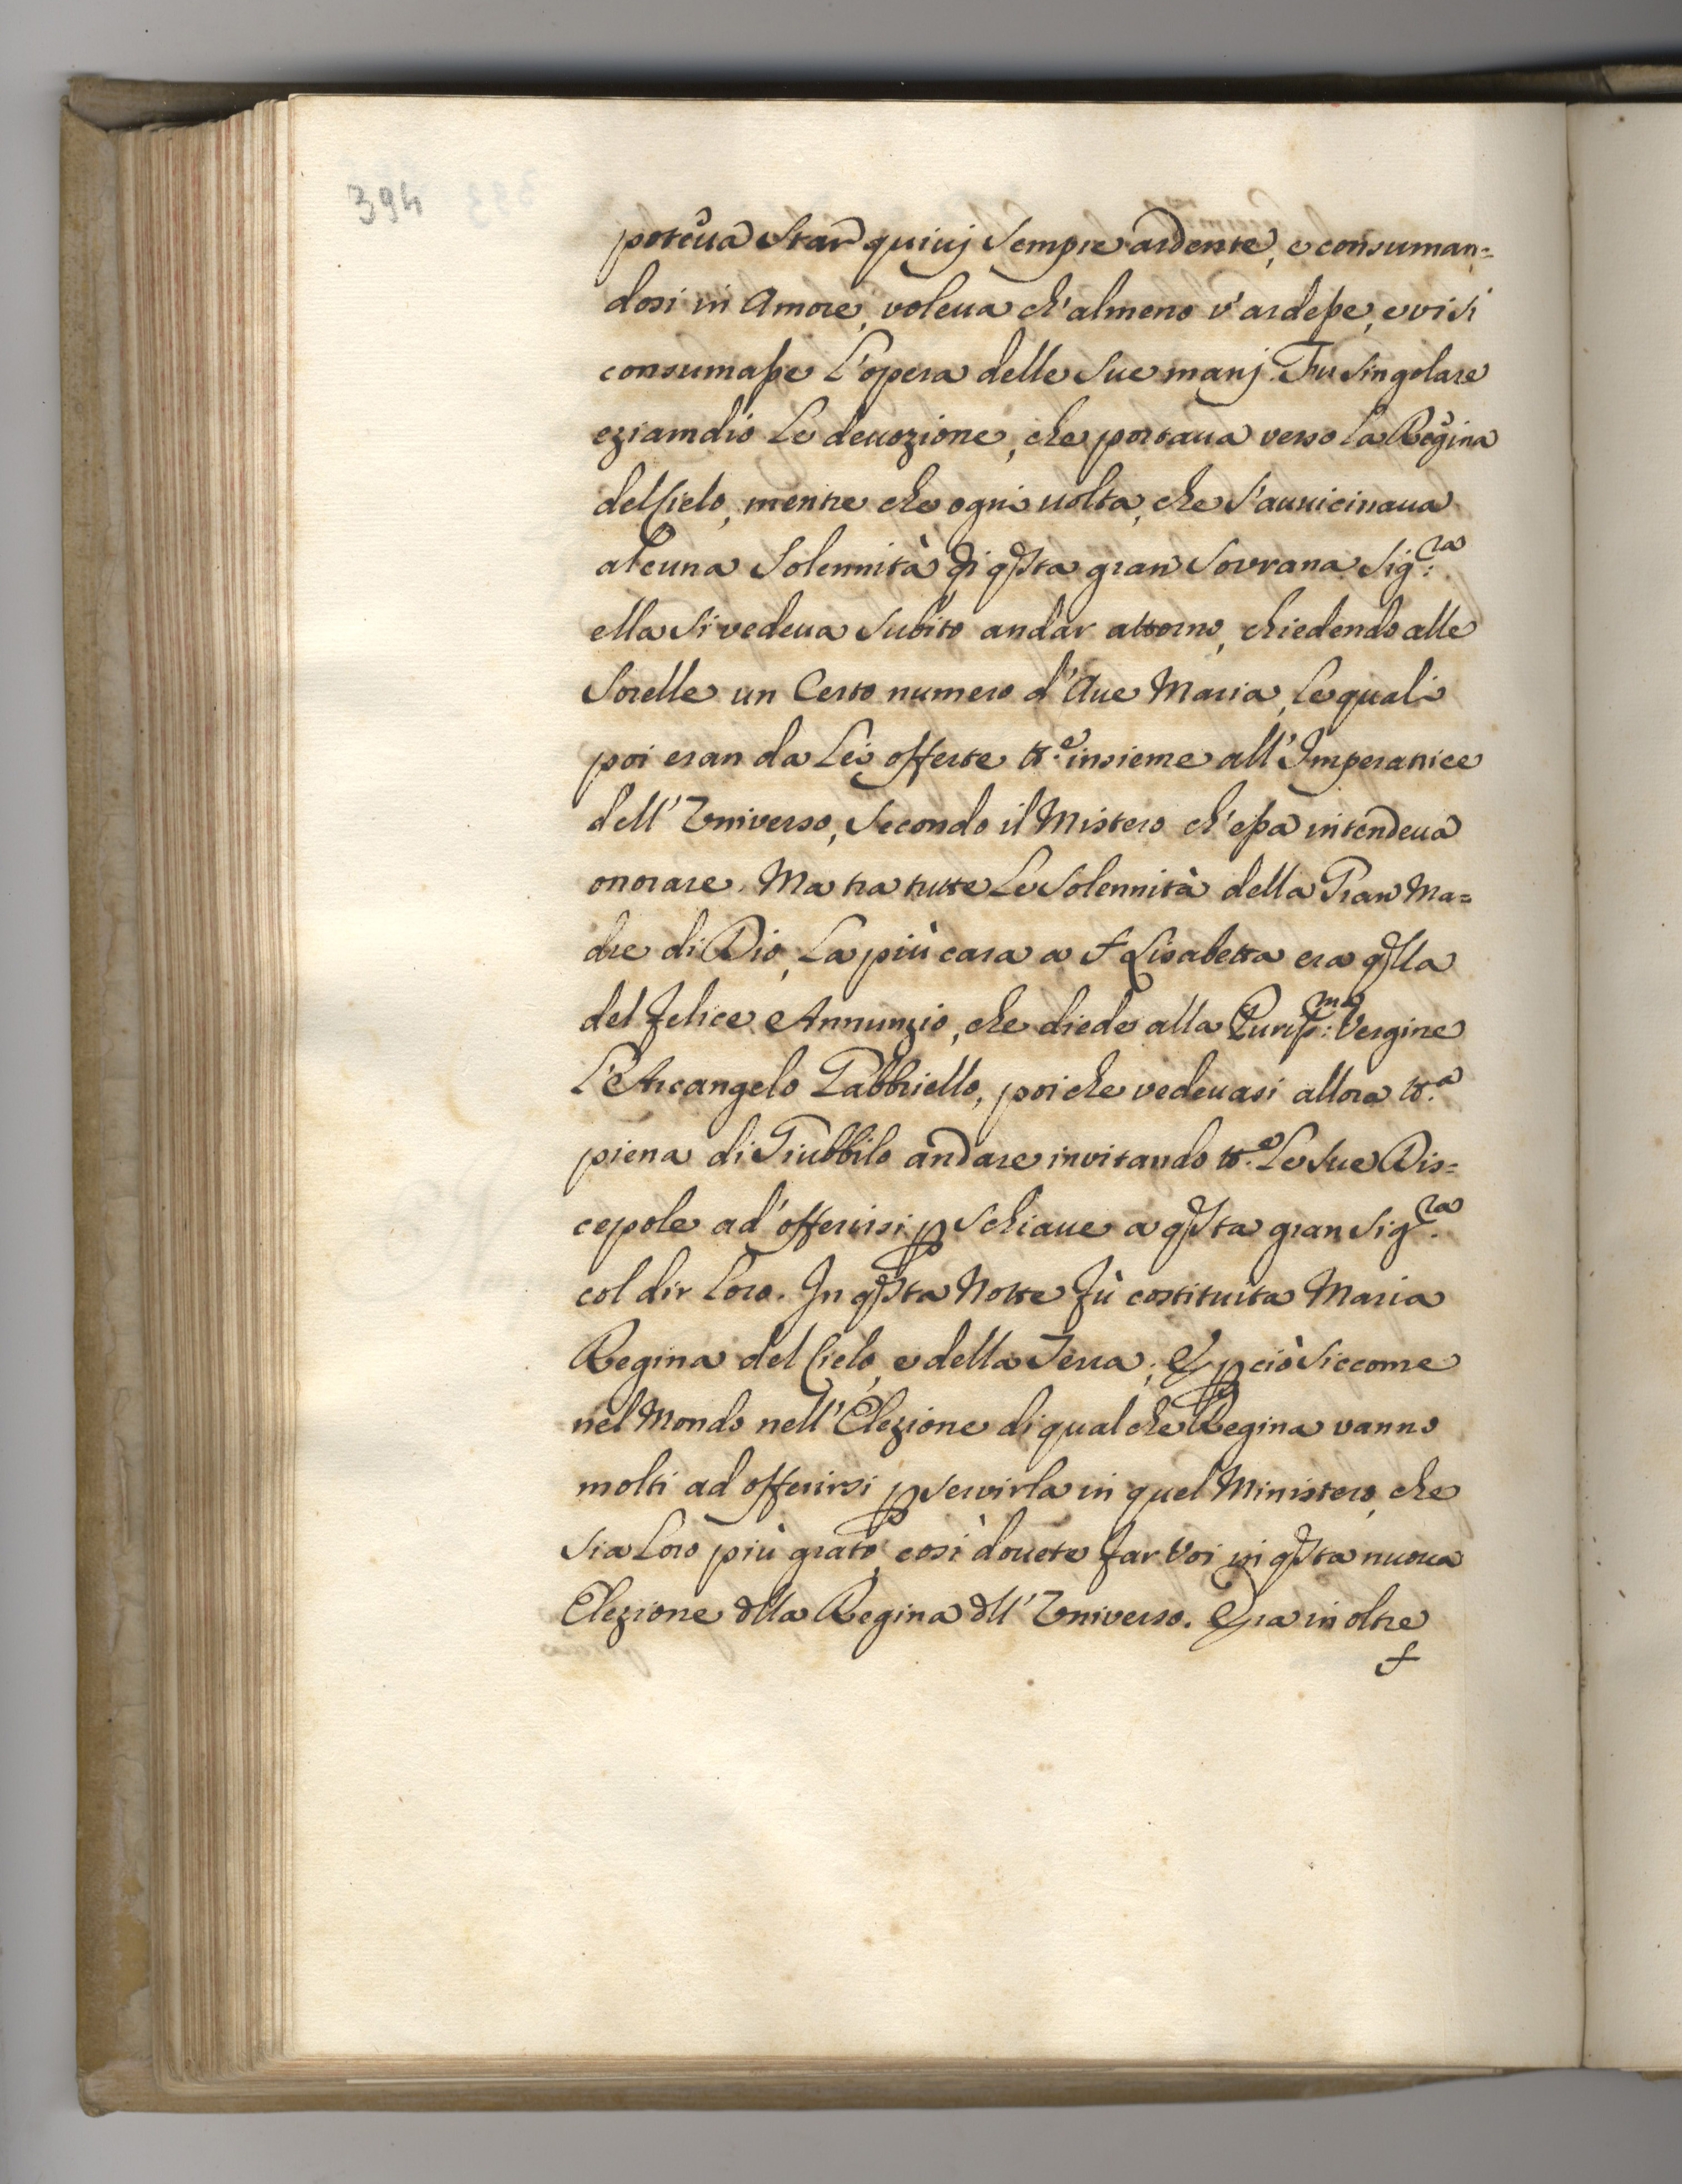 394
poteua Star quiuj Sempre ardente, e consuman=
dosi in Amore, voleua ch'almeno v'ardesse, e vi si
consumasse L'opera delle Sue manj. Fu Singolare
eziamdio Le deuozione, che portaua verso la Regina
del Cielo, mentre che ogni uolta, che S'auuicinaua
alcuna Solennità di qsta gran Sovrana Sig:ra
ella Si vedeua Subito andar attorno, chiedendo alle
Sorelle un Certo numero d'Aue Maria, Le quali
poi eran da Lei offerte tt.e insieme all'Imperatrice
dell'Vniverso, Secondo il Mistero ch'essa intendeua
onorare. Ma tra tutte Le Solennità della Gran Ma=
dre di Dio, La più cara a S Lisabetta era qlla
del felice Annunzio, che diede alla Puriss:ma Vergine
L'Arcangelo Gabbriello, poi che vedeuasi allora tt.a
piena di Giubbilo andare invitando tt.e Le Sue Dis=
cepole ad'offerirsi p Schiaue a qsta gran Sig.ra
col dir Loro. In qsta Notte fù costituita Maria
Regina del Cielo, e della Terra; E pciò Siccome
nel Mondo nell'Elezione di qual che Regina vanno
molti ad offerirsi p Servirla in quel Ministero, che
Sia Loro più grato, così douete far Voi in qsta nuoua
Elezione dlla Regina dll'Vniverso. Era in oltre
S